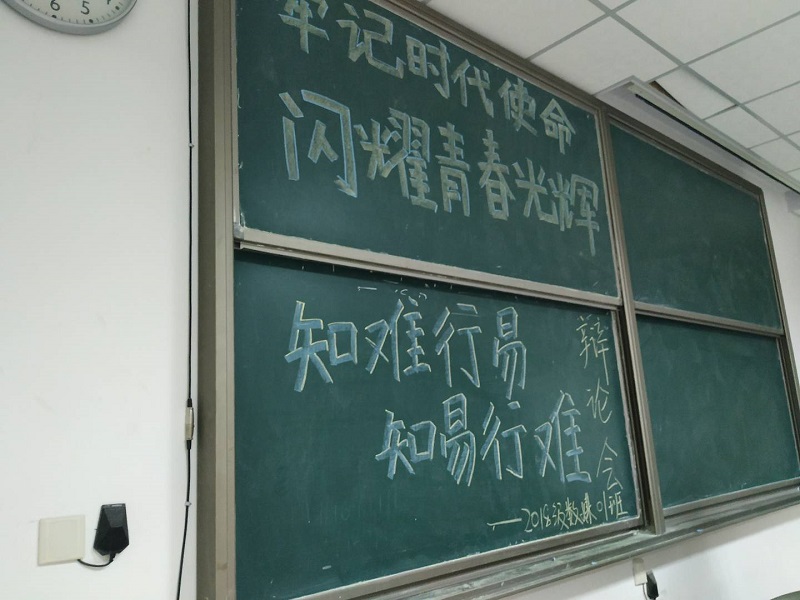 牢记时代使命
闪耀青春光辉
知难行易
知易行难
辩论会
——2018级数媒01班
6 5